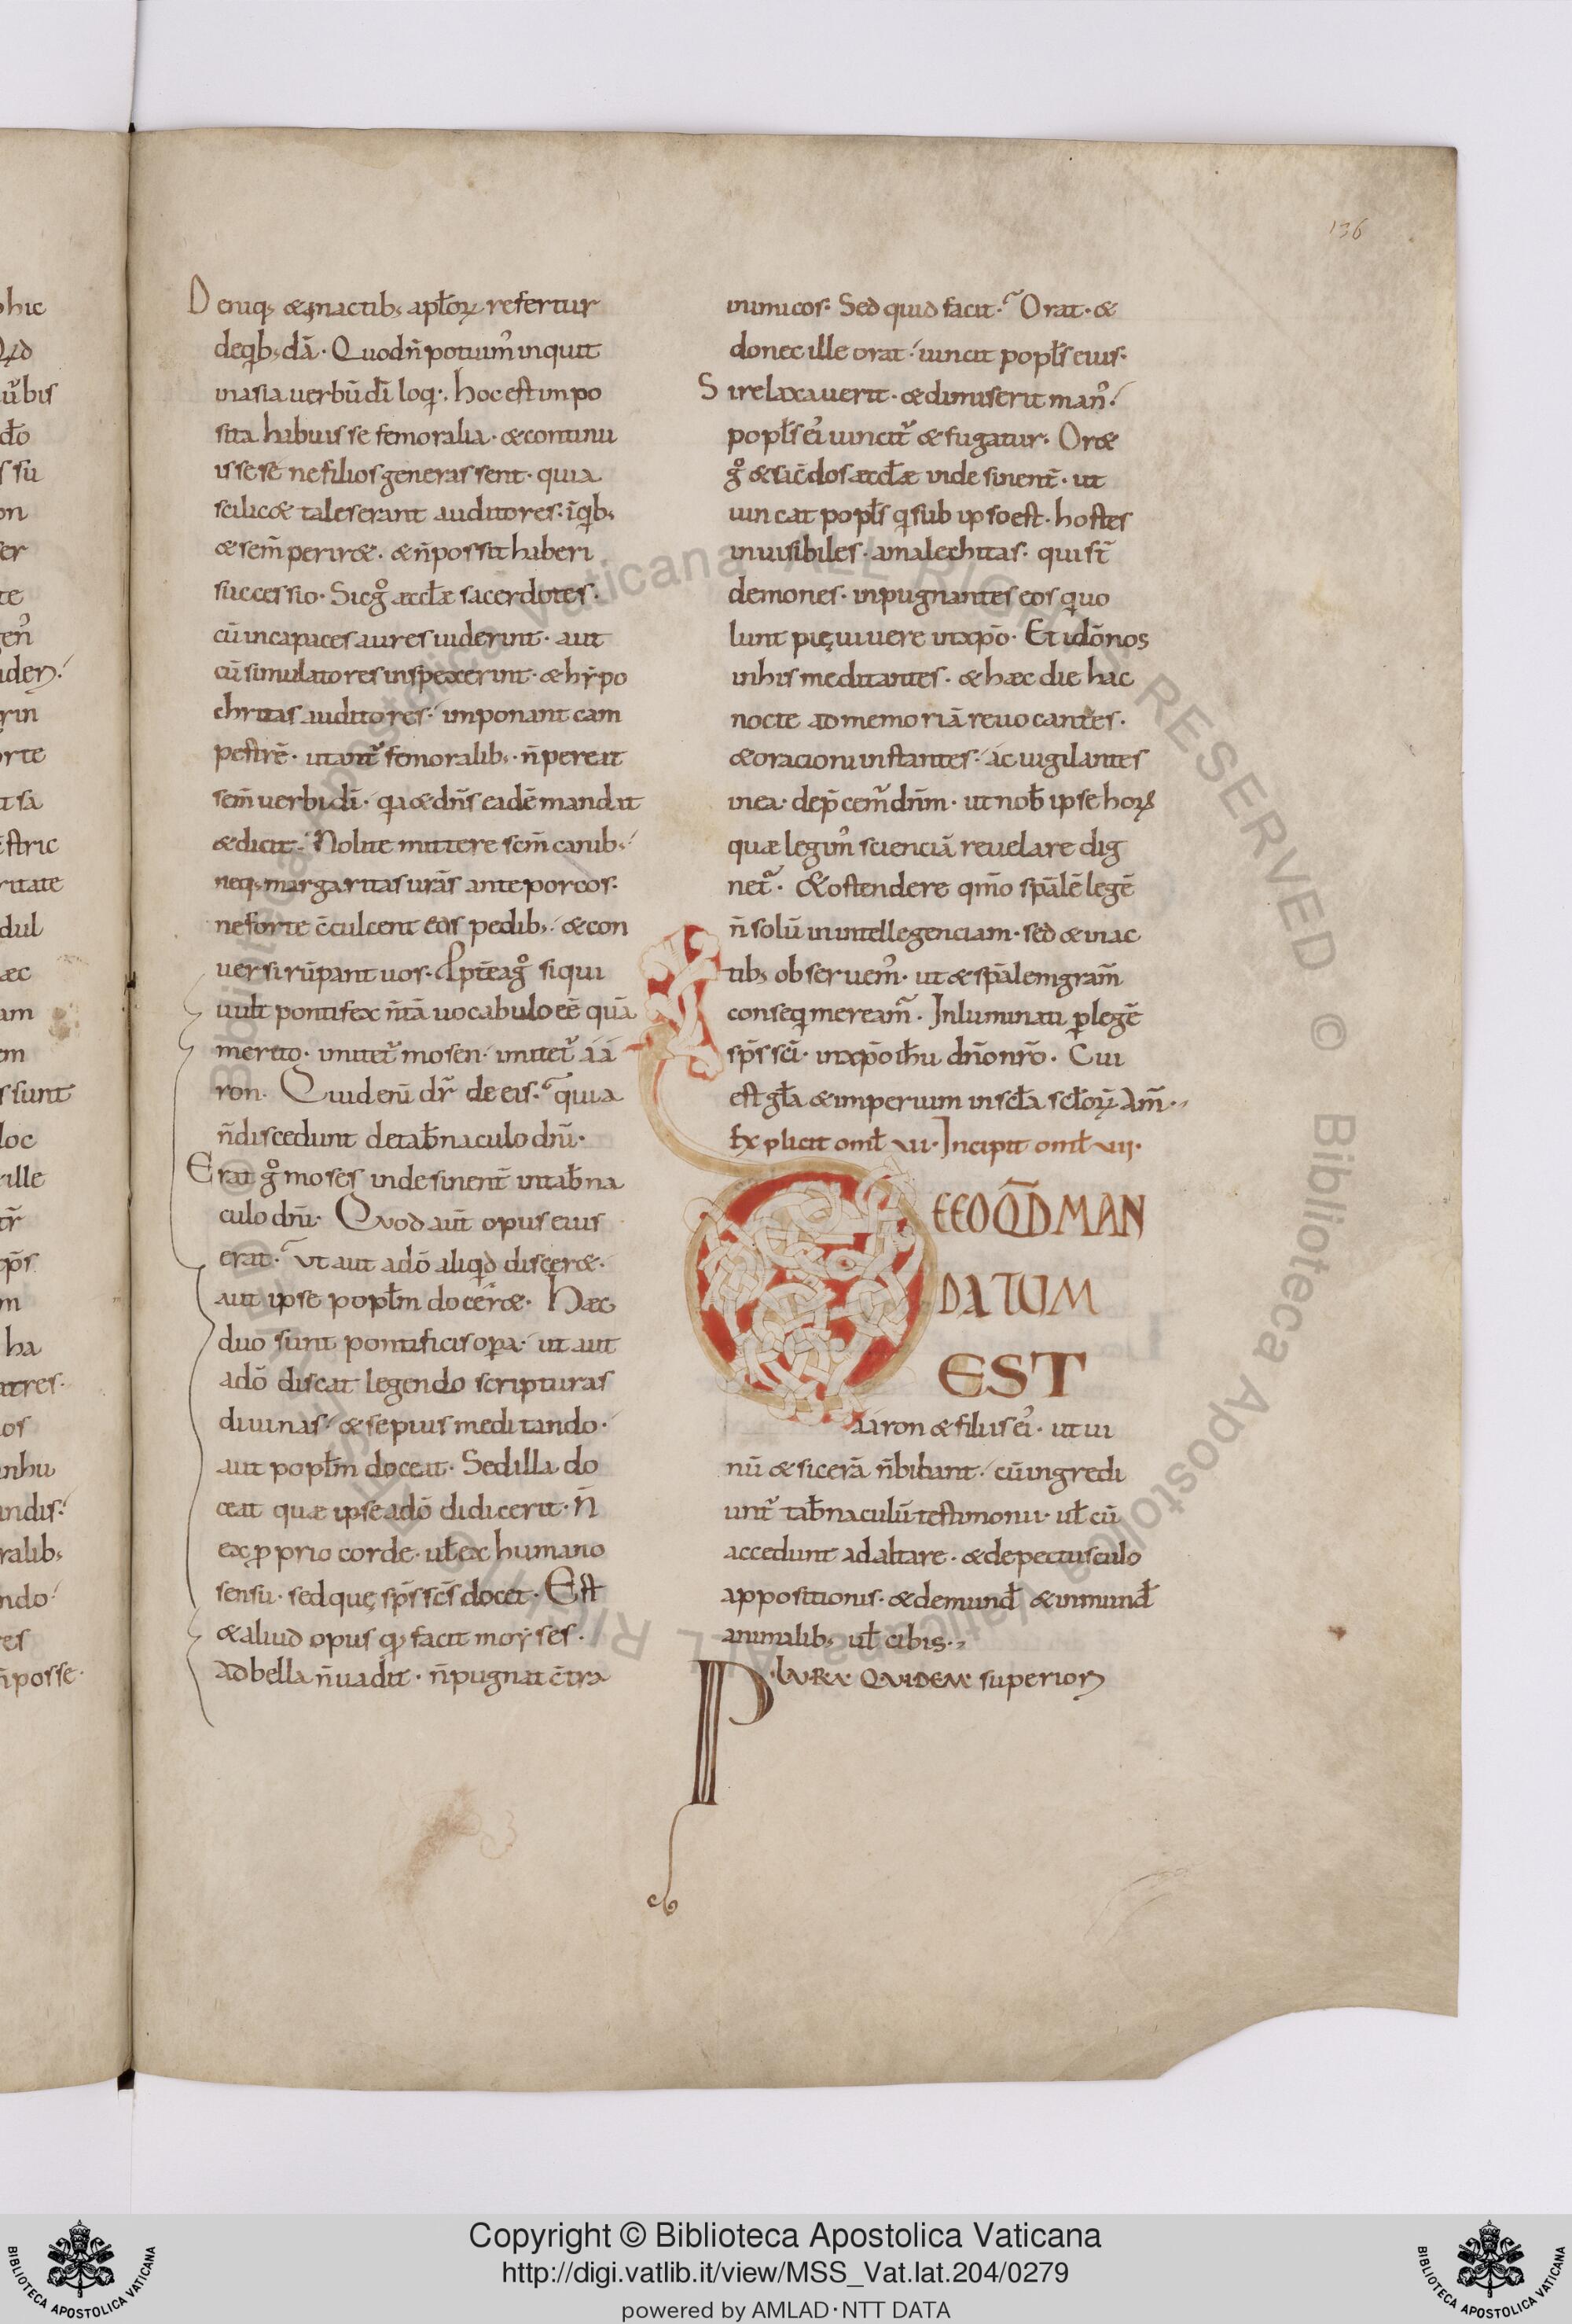 136
Deniq; & in actib; aptoꝝ refertur
deqb;dā· Quod n̄ potuim' inquit
in asia uerbū dī loq· hoc est impo
sita habuisse femoralia· & continu
isse sē ne filios generassent· quia
scilic& tales erant auditores· īqb;
& sem̄ perir&· & n̄ possit haberi
successio· Sic g° æccłæ sacerdotes·
cū incapaces aures uiderint· aut
cū simulatores inspexerint· & hẏpo
chritas auditores· imponant cam
pestrē· utant̄ femoralib;· n̄ pereat
sem̄ uerbi dī· qa & dn̄s eadē mandat
& dicit· Nolite mittere sc̄m canib;·
neq; margaritas urās ante porcos·
ne forte c̄culcent eas pedib;· & con
uersi rūpant uos· Ppt̄ea g° siqui
uult pontifex n̄tā uocabulo eē quā
merito· imitet̄ mosen· imitet̄ aa
ron· Quid enī dr̄ de eis· quia
n̄ discedunt de tab̄naculo dnī·
Erat g° moses indesinent̄ in tab̄na
culo dnī· Quod aut̄ opus eius
erat· ut aut a dō aliqd discer&·
aut ipse popłm docer&· Hæc
duo sunt pontificis oꝑa· ut aut
a dō discat legendo scripturas
diuinas· & sepius meditando·
aut popłm doceat· Sed illa do
ceat quæ ipse a dō didicerit· N̄
ex ꝓprio corde· uł ex humano
sensu· sed quę sp̄s sc̄s docet· Est
& aliud opus qd facit moẏses·
Ad bella n̄ uadit· n̄ pugnat c̄tra
inimicos· Sed quid facit· Orat· &
donec ille orat· uincit popłs eius·
Si relaxauerit· & dimiserit man'·
popłs ei' uincit̄ & fugatur· Or&
g° & sac̄dos æccłæ indesinent̄· ut
uincat popłs q sub ipso est· hostes
inuisibiles· amalechitas· qui st̄
demones· inpugnantes eos q uo
lunt pię uiuere in xp̄o· Et idō nos
in his meditantes· & hæc die hac
nocte ad memoriā reuocantes·
& oracioni instantes· ac uigilantes
in ea· dep̄cem̄ dnm· ut nob̄ ipse hoꝝ
quæ legim' scienciā reuelare dig
net̄· & ostendere qm̄o sp̄alē legē
n̄ solū in intellegenciam· sed & in ac
tib; obseruem'· ut & sp̄alem gram̄
conseq meream̄· Inluminati ꝑ legē
sp̄s sc̄i· in xp̄o ihu dn̄o nr̄o· Cui
est gła & imperium in scła scłoꝝ Am̄·
Explicit omł vi· Incipit omł vii·
DEEO QD MAN
DATUM
EST
Aaron & filiis ei'· ut ui
nū & sicerā n̄ bibant· cū ingredi
unt̄ tab̄naculū testimonii· uł cū
accedunt ad altare· & de pectusculo
appositionis· & de mund̄ & inmund̄
animalib; uł cibis·
PLURA QUIDEM superioꝝ
Copyright © Biblioteca Apostolica Vaticana
http://digi.vatlib.it/view/MSS_Vat.lat.204/0279
powered by AMLAD·NTT DATA
BIBLIOTECA APOSTOLICA VATICANA
BIBLIOTECA APOSTOLICA VATICANA